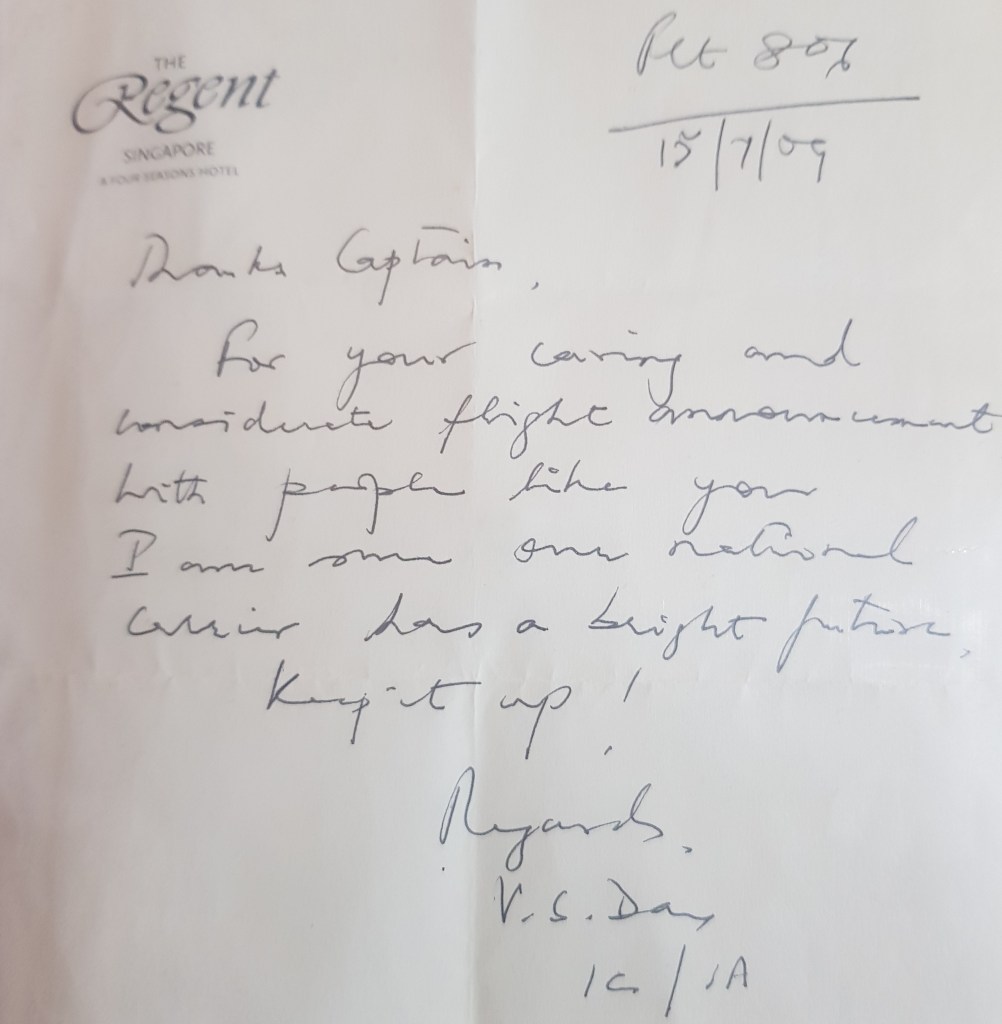 THE
Regent
SINGAPORE
A FOUR SEASONS HOTEL
15/7/09
Thanks Captain,
For your caring and
considerate flight announcement
With people like you
I am sure our national
carrier has a bright future.
Keep it up!
Regards.
V.S.